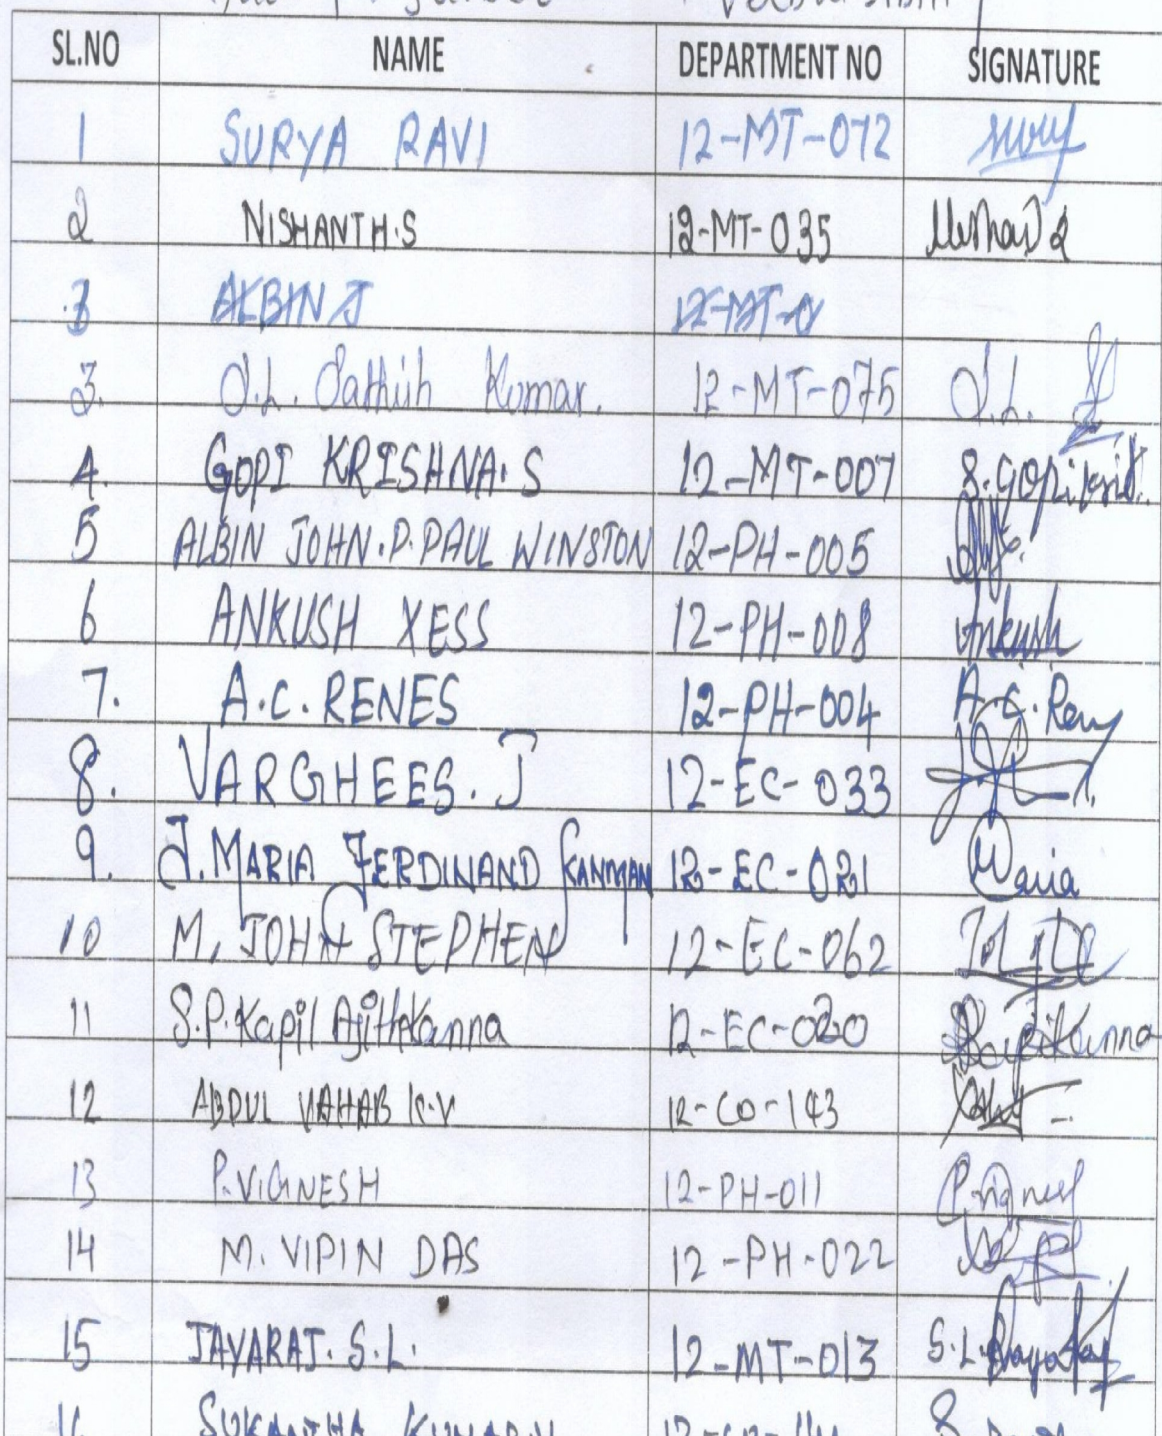 SL.NO NAME DEPARTMENT NO SIGNATURE
1 SURYA RAVI 12-MT-072 Surya
2 NISHANTH.S 12-MT-035
3 ALBIN J 12-MT-0
3. S.L. Sathish Kumar. 12-MT-075 S.L.
4. GOPI KRISHNA.S 12-MT-007 S.Gopikrish
5 ALBIN JOHN.P.PAUL WINSTON 12-PH-005
6 ANKUSH XESS 12-PH-008 Ankush
7. A.C.RENES 12-PH-004 A.C.Reny
8. VARGHEES.J 12-EC-033
9. J.MARIA FERDINAND KANMAN 12-EC-021 Maria
10 M. JOHN STEPHEN 12-EC-062
11 S.P.Kapil AjithKanna 12-EC-020
12 ABDUL VAHAB K.V 12-CO-143
13 P.VIGNESH 12-PH-011 P.Vignesh
14 M. VIPIN DAS 12-PH-022
15 JAYARAJ. S.L. 12-MT-013 S.L.Jayaraj
16 SUKANTHA KUMAR